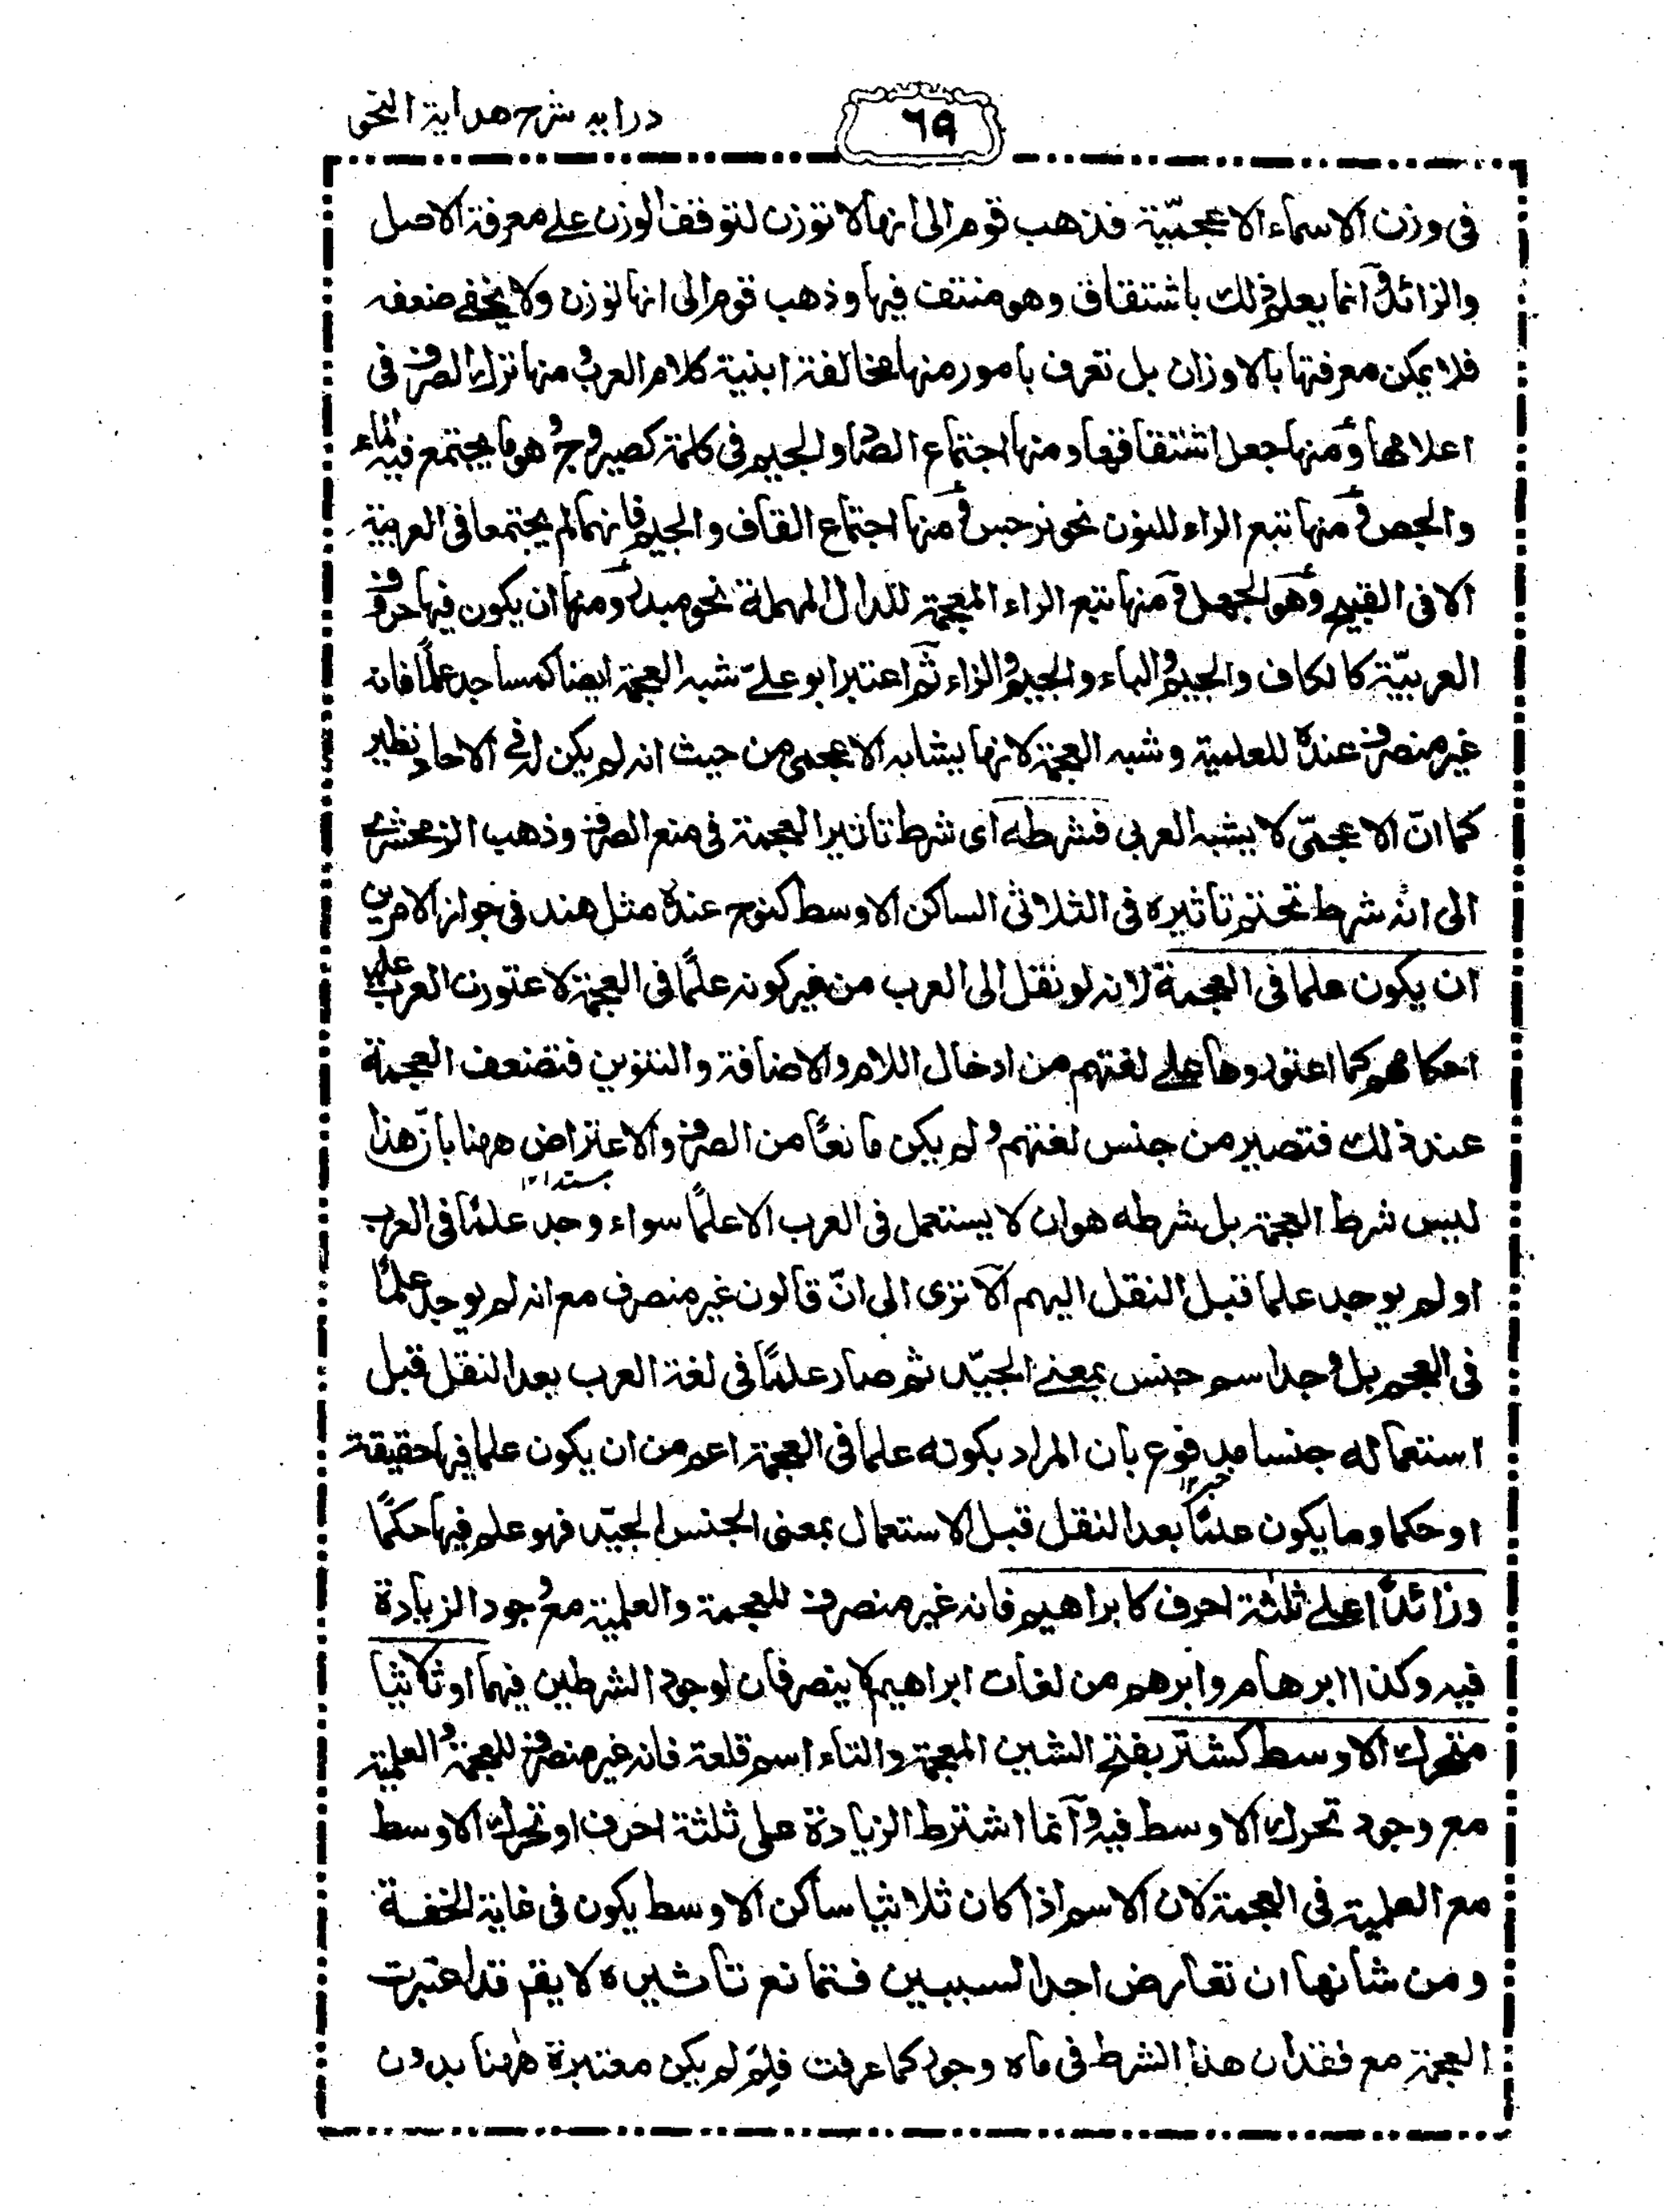 درايه شرح هداية النحو
٦٩
فى وزن الاسماء الاعجميّة فذهب قوم الى انها لا توزن لتوقف الوزن على معرفة الاصل
والزائد وانما يعلم ذلك باشتقاق وهو منتف فيها وذهب قوم الى انها توزن ولا يخفى ضعفه
فلا يمكن معرفتها بالاوزان بل تعرف بامور منها مخالفة ابنية كلام العرب ومنها ترك الصرف فى
اعلامها ومنها جعل اشتقاقها ومنها اجتماع الصاد والجيم فى كلمة كصير وج وهو ما يجتمع فيه الماء
والجص ومنها تتبع الراء للنون نحو نرجس ومنها اجتماع القاف والجيم فانهما لم يجتمعا فى العربية
الا فى القبيح وهو الجهل ومنها تتبع الزاء المعجمة للدال المهملة نحو ومنها ان يكون فيها حروف
العربيّة كالكاف والجيم والباء والجيم والزاء ثم اعتبر ابو علىّ شبه العجمة ايضا كمساجد علمًا فانه
غير منصرف عنده للعلمية وشبه العجمة لانها يشابه الاعجمى من حيث انه لم يكن له فى الاحاد نظير
كما انّ الاعجمىّ لا يشبه العربى فشرطه اى شرط تاثير العجمة فى منع الصرف وذهب الزمخشرى
الى انه شرط تحتم تاثيره فى الثلاثى الساكن الاوسط كنوح عنده مثل هند فى جواز الامرين
ان يكون علما فى العجمة لانه لو نقل الى العرب من غير كونه علمًا فى العجمة لاعتورت العرب عليه
احكامهم كما اعتوروها على لغتهم من ادخال اللام والاضافة والتنوين فتضعف العجمة
عند ذلك فتصير من جنس لغتهم ولم يكن مانعًا من الصرف والاعتراض ههنا بانّ هذا
مبتدا ١٢
ليس شرط العجمة بل شرطه هو ان لا يستعمل فى العرب الا علمًا سواء وجد علمًا فى العرب
او لم يوجد علما قبل النقل اليهم الا ترى الى انّ قالون غير منصرف مع انه لم يوجد علمًا
فى العجم بل وجد اسم جنس بمعنى الجيّد ثم صار علمًا فى لغة العرب بعد النقل قبل
استعماله جنسا مدفوع بان المراد بكونه علما فى العجمة اعم من ان يكون علما فيها حقيقة
خبر ١٢
او حكما وما يكون علمًا بعد النقل قبل الاستعمال بمعنى الجنس الجيّد فهو علم فيها حكمًا
وزائدًا على ثلثة احرف كابراهيم فانه غير منصرف للعجمة والعلمية مع وجود الزيادة
فيه وكذا ابرهام وابرهم من لغات ابراهيم لا ينصرفان لوجود الشرطين فيهما او ثلاثيا
متحرك الاوسط كشتر بفتح الشين المعجمة والتاء اسم قلعة فانه غير منصرف للعجمة والعلمية
مع وجود تحرك الاوسط فيه وانما اشترط الزيادة على ثلثة احرف او تحرك الاوسط
مع العلمية فى العجمة لان الاسم اذا كان ثلاثيا ساكن الاوسط يكون فى غاية الخفة
ومن شانها ان تعارض احد السببين فتمانع تاثيره لا يقم قد اعتبرت
العجمة مع فقدان هذا الشرط فى ماه وجور كما عرفت فلم لم يكن معتبرة ههنا بدون